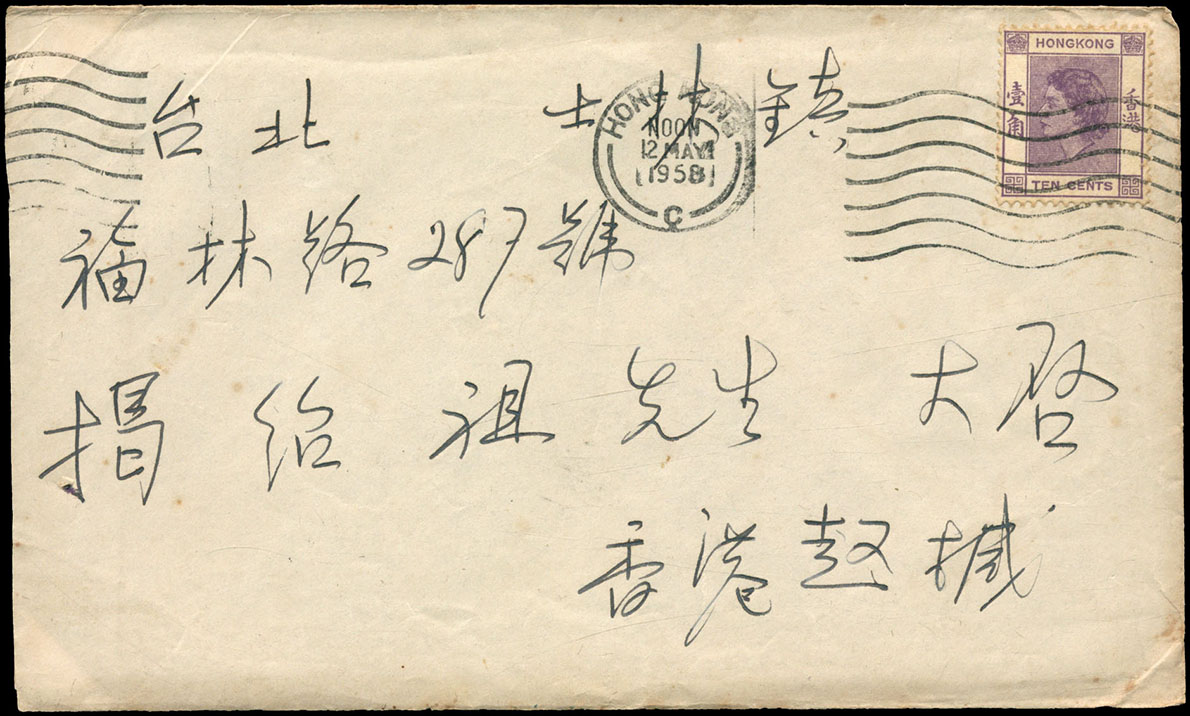 HONGKONG
壹角
香港
TEN CENTS
HONG KONG
NOON
12 MAY
1958
C
台北 士林鎮
福林路287號
揭紹祖先生 大啓
香港趙